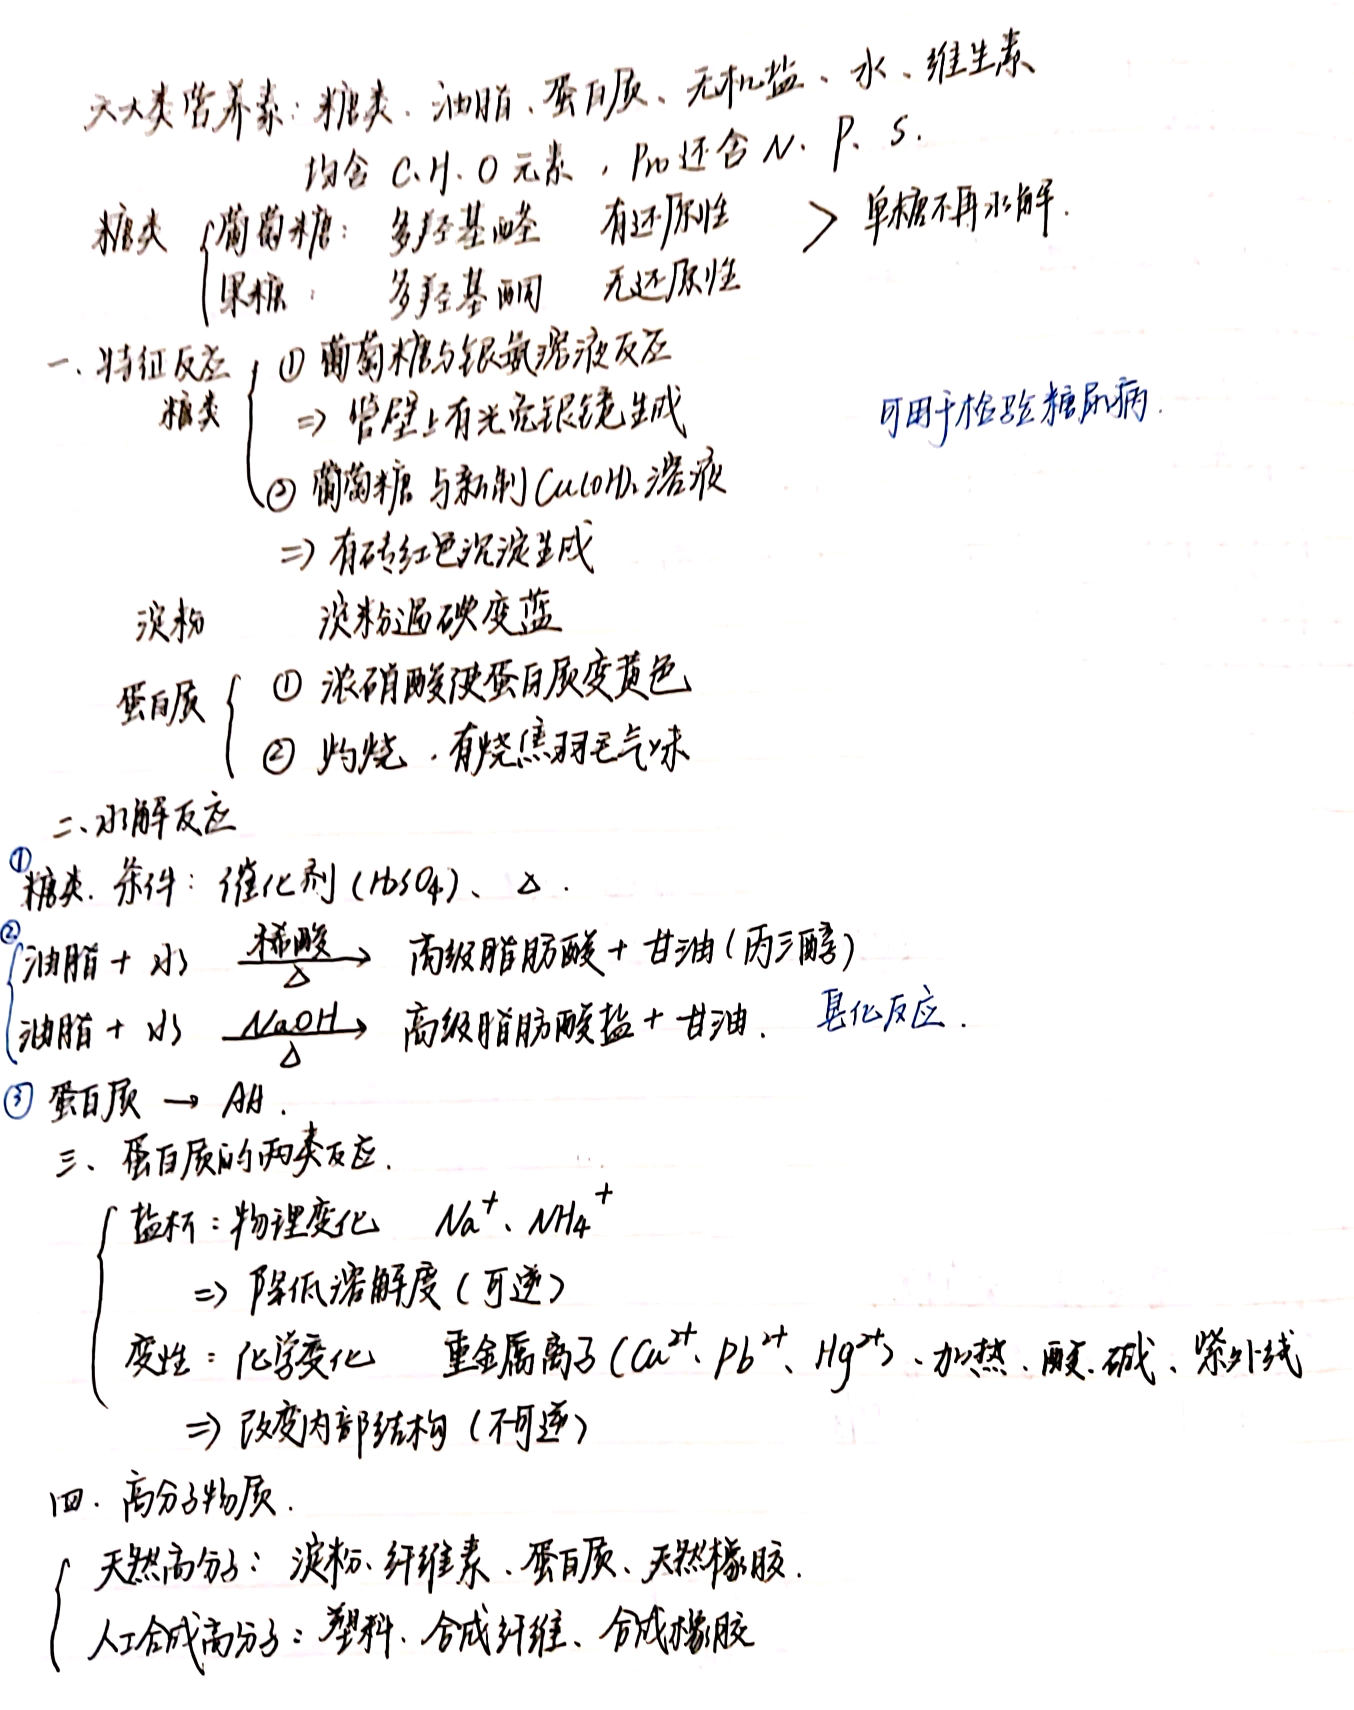 六大类营养素：糖类、油脂、蛋白质、无机盐、水、维生素
均含 C.H.O 元素，Pro还含 N、P、S.
糖类 葡萄糖： 多羟基醛 有还原性 > 单糖不再水解.
果糖： 多羟基酮 无还原性
一、特征反应 ① 葡萄糖与银氨溶液反应
糖类 => 管壁上有光亮银镜生成 可用于检验糖尿病.
② 葡萄糖与新制Cu(OH)₂溶液
=> 有砖红色沉淀生成
淀粉 淀粉遇碘变蓝
蛋白质 ① 浓硝酸使蛋白质变黄色
② 灼烧，有烧焦羽毛气味
二、水解反应
① 糖类. 条件：催化剂（H₂SO₄）、△.
② 油脂 + 水 稀酸 △ → 高级脂肪酸 + 甘油（丙三醇）
油脂 + 水 NaOH △ → 高级脂肪酸盐 + 甘油. 皂化反应.
③ 蛋白质 → AA.
三、蛋白质的两类反应.
盐析：物理变化 Na⁺、NH₄⁺
=> 降低溶解度（可逆）
变性：化学变化 重金属离子（Cu²⁺、Pb²⁺、Hg²⁺）、加热、酸、碱、紫外线
=> 改变内部结构（不可逆）
四. 高分子物质.
天然高分子：淀粉、纤维素、蛋白质、天然橡胶.
人工合成高分子：塑料、合成纤维、合成橡胶